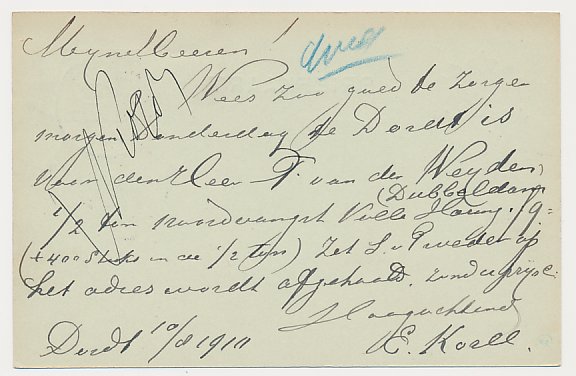 Mijne Heeren!
Wees zoo goed te zorgen
morgen Donderdag te Dordt is
voor den Heer T. van der Weyden
(Dubbeldam)
1/2 ton Noordvangst Volle Haring.
(± 400 stuks in de 1/2 ton) Zet S. v. P. weder op
het adres wordt afgehaald.
Hoogachtend
Dordt 10/8 1910 E. Korll.